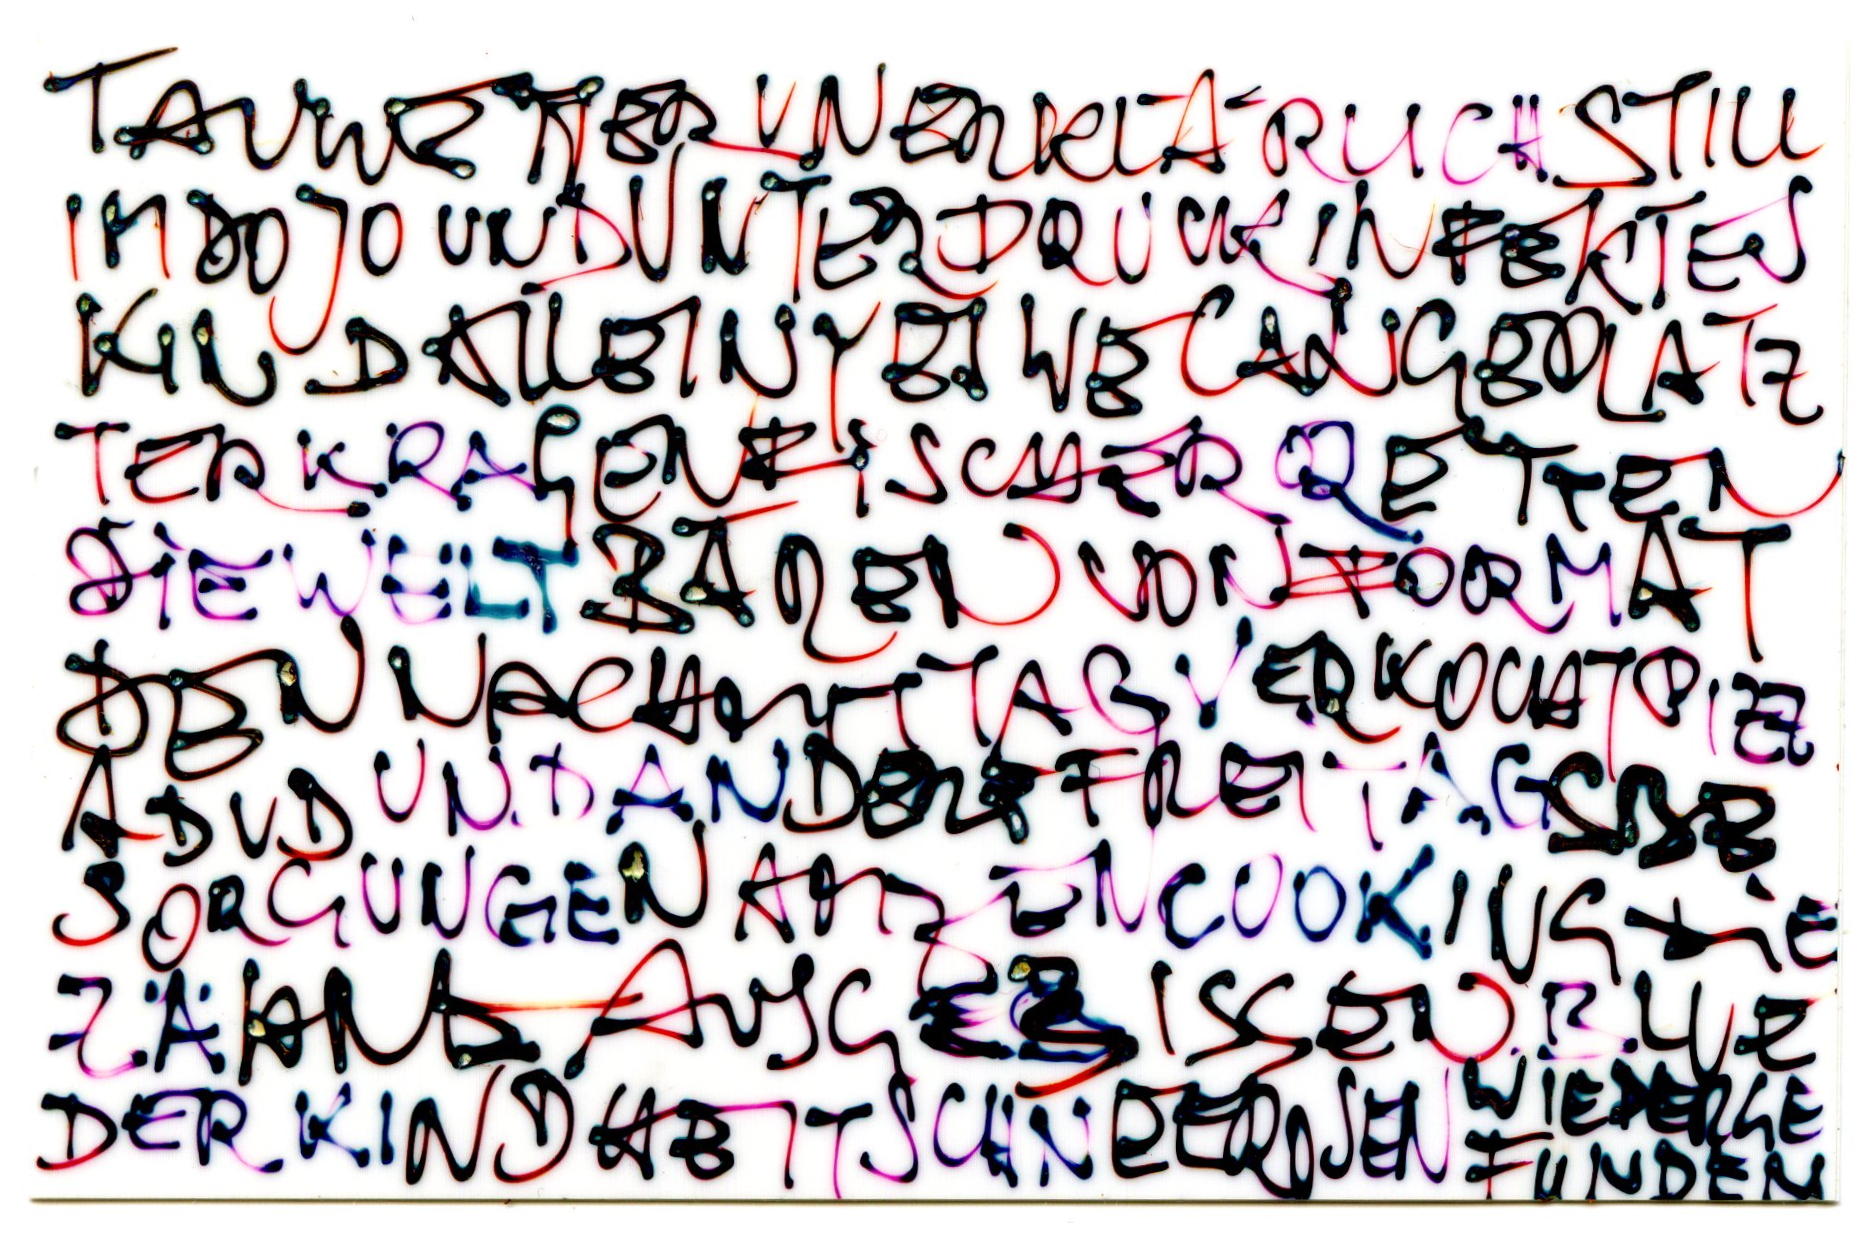 TAUWETTER UNERKLÄRLICH STILL
IM DOJO UND UNTERDRUCK INFEKTES
KIND ALLEIN YES WE CAN GEPLATZ
TER KRAGEN FISCHER RETTEN
DIE WELT BÄREN VON FORMAT
DEN NACHMITTAG VERKOCHT PIZZ
A DVD UND ANDERE FREITAGSBE
SORGUNGEN AM ZEN COOKING DIE
ZÄHNE AUSGEBISSEN BLUE
DER KINDHEIT SCHNEEROSEN WIEDERGE
FUNDEN